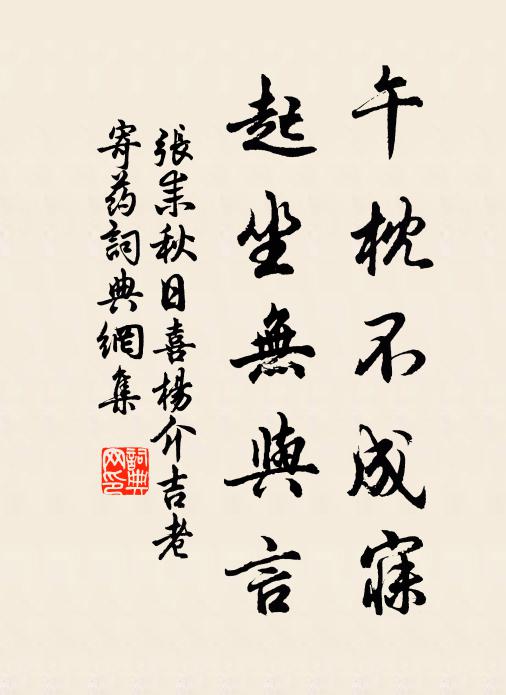 午枕不成寐
起坐無與言
張耒秋日喜楊介吉老
寄药詞典網集
詞典
网印